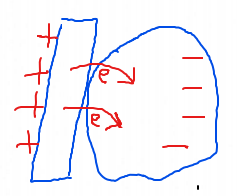 +
−
+ e
−
+ e −
+ −